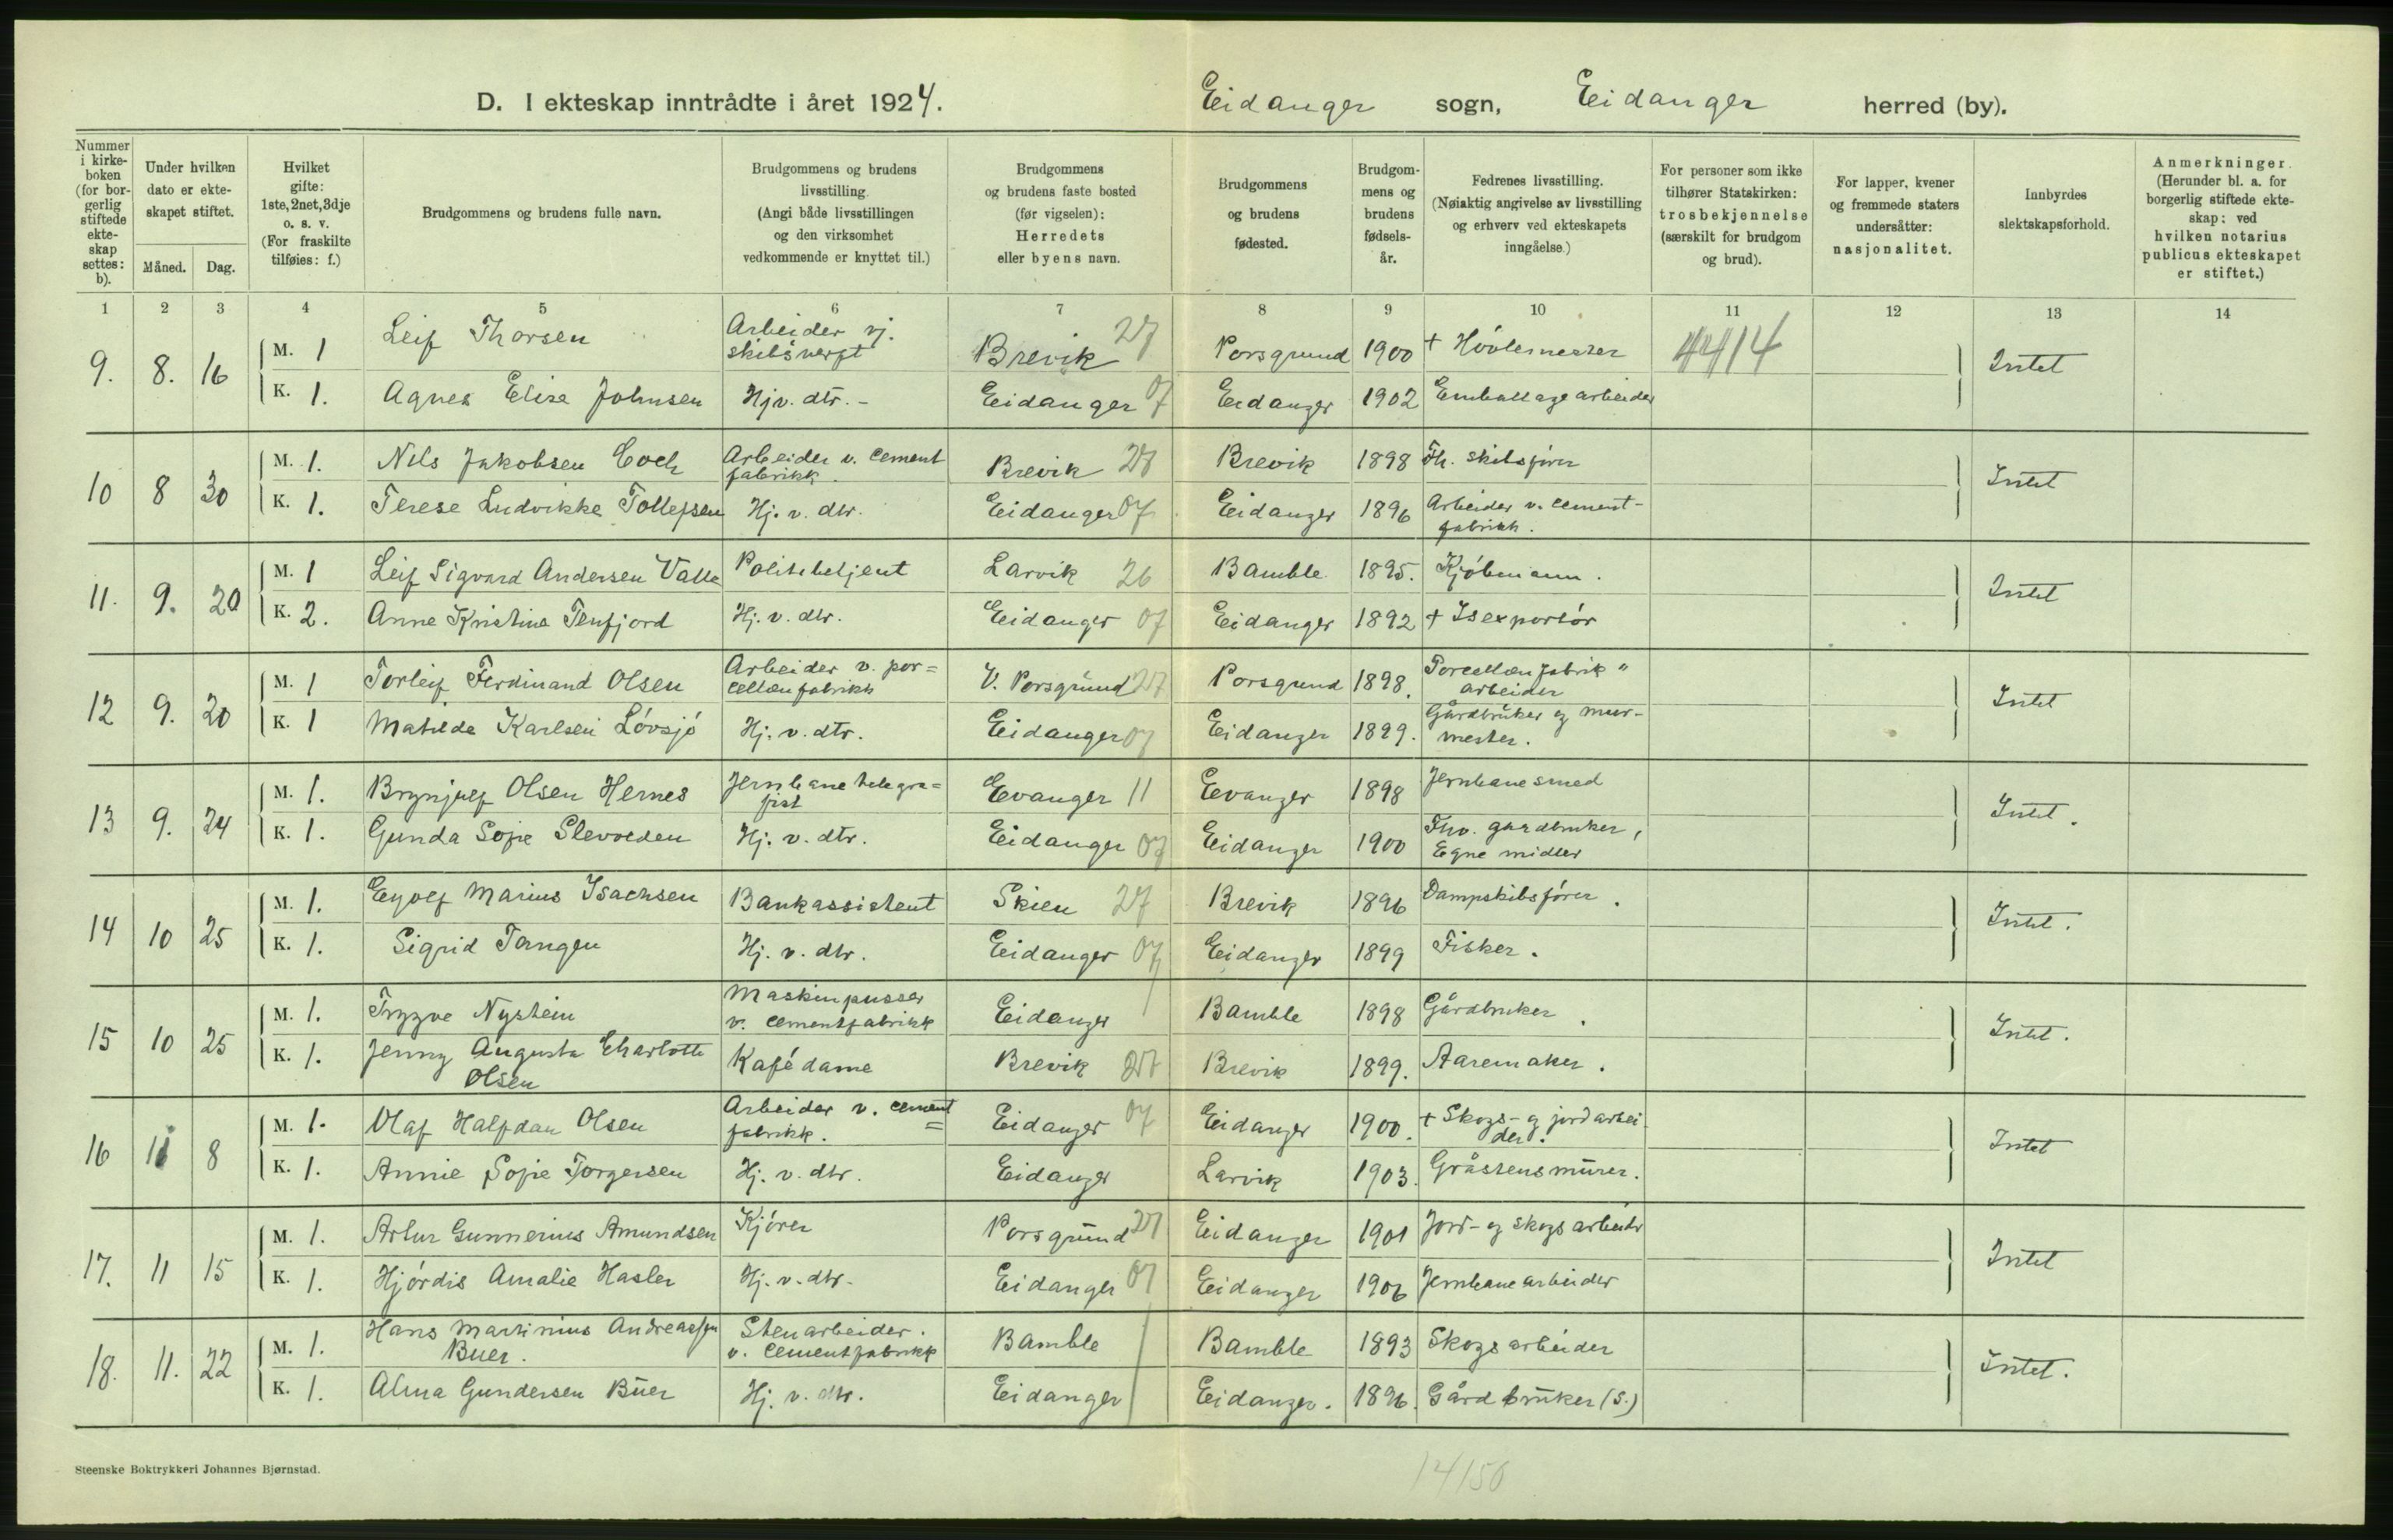 D. I ekteskap inntrådte i året 1924. Eidanger sogn, Eidanger herred (by).
Nummer i kirkeboken (for borgerlig stiftede ekteskap settes: b).
Under hvilken dato er ekteskapet stiftet.
Måned. Dag.
Hvilket gifte: 1ste, 2net, 3dje o. s. v. (For fraskilte tilføies: f.)
Brudgommens og brudens fulle navn.
Brudgommens og brudens livsstilling. (Angi både livsstillingen og den virksomhet vedkommende er knyttet til.)
Brudgommens og brudens faste bosted (før vigselen): Herredets eller byens navn.
Brudgommens og brudens fødested.
Brudgommens og brudens fødselsår.
Fedrenes livsstilling. (Nøiaktig angivelse av livsstilling og erhverv ved ekteskapets inngåelse.)
For personer som ikke tilhører Statskirken: trosbekjennelse (særskilt for brudgom og brud).
For lapper, kvener og fremmede staters undersåtter: nasjonalitet.
Innbyrdes slektskapsforhold.
Anmerkninger. (Herunder bl. a. for borgerlig stiftede ekteskap: ved hvilken notarius publicus ekteskapet er stiftet.)
1 2 3 4 5 6 7 8 9 10 11 12 13 14
9. 8. 16 M. 1 Leif Thorsen Arbeider vj. skibsvergt Brevik 27 Porsgrund 1900 + Hóvlemester 4414 Intet
K. 1. Agnes Elise Johnsen Hjv. dtr. - Eidanger 07 Eidanger 1902 Emballage arbeider
10 8 30 M. 1. Nils Jakobsen Coch Arbeider v. cement fabrikk. Brevik 27 Brevik 1898 Fh. skibsfører Intet
K. 1. Terese Ludvikke Tollefsen Hj. v. dtr. Eidanger 07 Eidanger 1896 Arbeider v. cement-fabrikk.
11. 9. 20 M. 1 Leif Sigvard Andersen Valle Politibetjent Larvik 26 Bamble 1895. Kjóbmann. Intet
K. 2. Anne Kristine Tenfjord Hj. v. dtr. Eidanger 07 Eidanger 1892 + Isexportór
12 9. 20 M. 1 Torleif Ferdinand Olsen Arbeider v. por=cellænfabrikk V. Porsgrund 27 Porsgrund 1898. Porcellænfabrik" arbeider Intet
K. 1 Matilde Karlsen Lóvsjó Hj. v. dtr. Eidanger 07 Eidanger 1899. Gårdbruker og mur-mester.
13 9. 24 M. 1. Brynjulf Olsen Hernes Jernbanetelegra=fist Evanger 11 Evanger 1898 Jernbanesmed Intet.
K. 1. Gunda Sofie Slevolden Hj. v. dtr. Eidanger 07 Eidanger 1900 Fhv. gårdbruker, Egne midler
14 10 25 M. 1. Eyolf Marius Isachsen Bankassistent Skien 27 Brevik 1896 Dampskibsfórer. Intet.
K. 1. Sigrid Tangen Hj. v. dtr. Eidanger 07 Eidanger 1899 Fisker.
15 10 25 M. 1. Trygve Nystein Maskinpusser v. cementfabrikk Eidanger Bamble 1898 Gårdbruker. Intet.
K. 1. Jenny Augusta Charlotte Olsen Kafédame Brevik 27 Brevik 1899. Aaremaker.
16 11 8 M. 1. Olaf Halfdan Olsen Arbeider v. cement=fabrikk. Eidanger 07 Eidanger 1900. + Skogs- og jordarbeider. Intet
K. 1. Annie Sofie Torgersen Hj. v. dtr. Eidanger Larvik 1903. Gråstensmurer.
17. 11 15 M. 1. Artur Gunnerius Amundsen Kjórer Porsgrund 27 Eidanger 1901 Jord- og skogsarbeider Intet
K. 1. Hjórdis Amalie Hasler Hj. v. dtr. Eidanger 07 Eidanger 1906 Jernbanearbeider
18. 11. 22 M. 1. Hans Martinius Andreassen Buer. Stenarbeider. v. cementfabrikk Bamble Bamble 1893 Skogsarbeider Intet.
K. 1. Alma Gundersen Buer Hj. v. dtr. Eidanger Eidanger. 1896. Gårdbruker (S.)
Steenske Boktrykkeri Johannes Bjørnstad.
14150